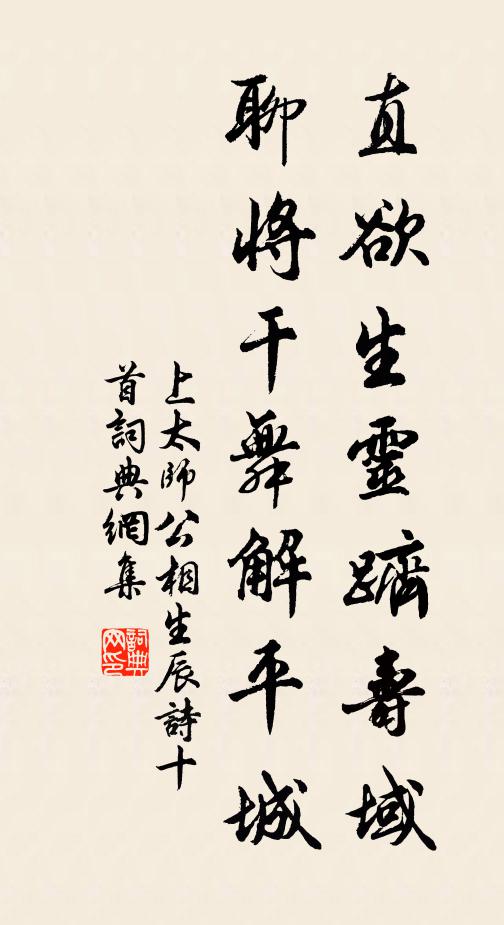 直欲生靈躋壽域
聊將干舞解平城
上太師公相生辰詩十
首詞典網集
詞典网印